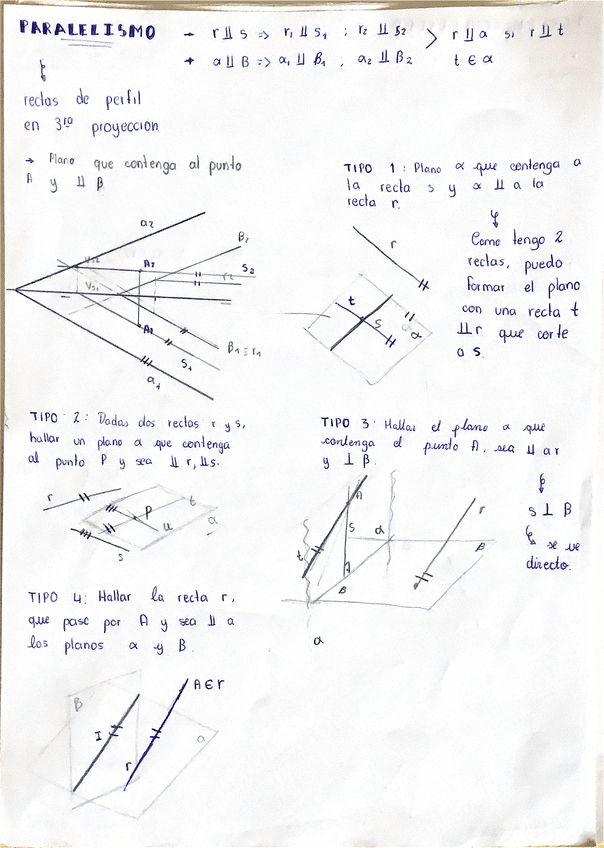 PARALELISMO → r ∥ s => r₁ ∥ s₁ ; r₂ ∥ s₂ > r ∥ α si r ∥ t
→ α ∥ β => α₁ ∥ β₁ ; α₂ ∥ β₂ t ∈ α
rectas de perfil
en 3ra proyección
→ Plano que contenga al punto
A y ∥ β
α₂
β₂
Vs₂
A₂
s₂
r₂
Vs₁
A₁
s₁
β₁ ≡ r₁
α₁
TIPO 1: Plano α que contenga a
la recta s y α ∥ a la
recta r.
Como tengo 2
rectas, puedo
formar el plano
con una recta t
∥ r que corte
a s.
r
t
s
α
TIPO 2: Dadas dos rectas r y s,
hallar un plano α que contenga
al punto P y sea ∥ r, ∥ s.
r
t
P
u
α
s
TIPO 3: Hallar el plano α que
contenga el punto A, sea ∥ a r
y ⊥ β.
s ⊥ β
se ve
directo.
A
s
d
r
t
β
B
α
TIPO 4: Hallar la recta r,
que pase por A y sea ∥ a
los planos α y β.
A ∈ r
β
I
α
r